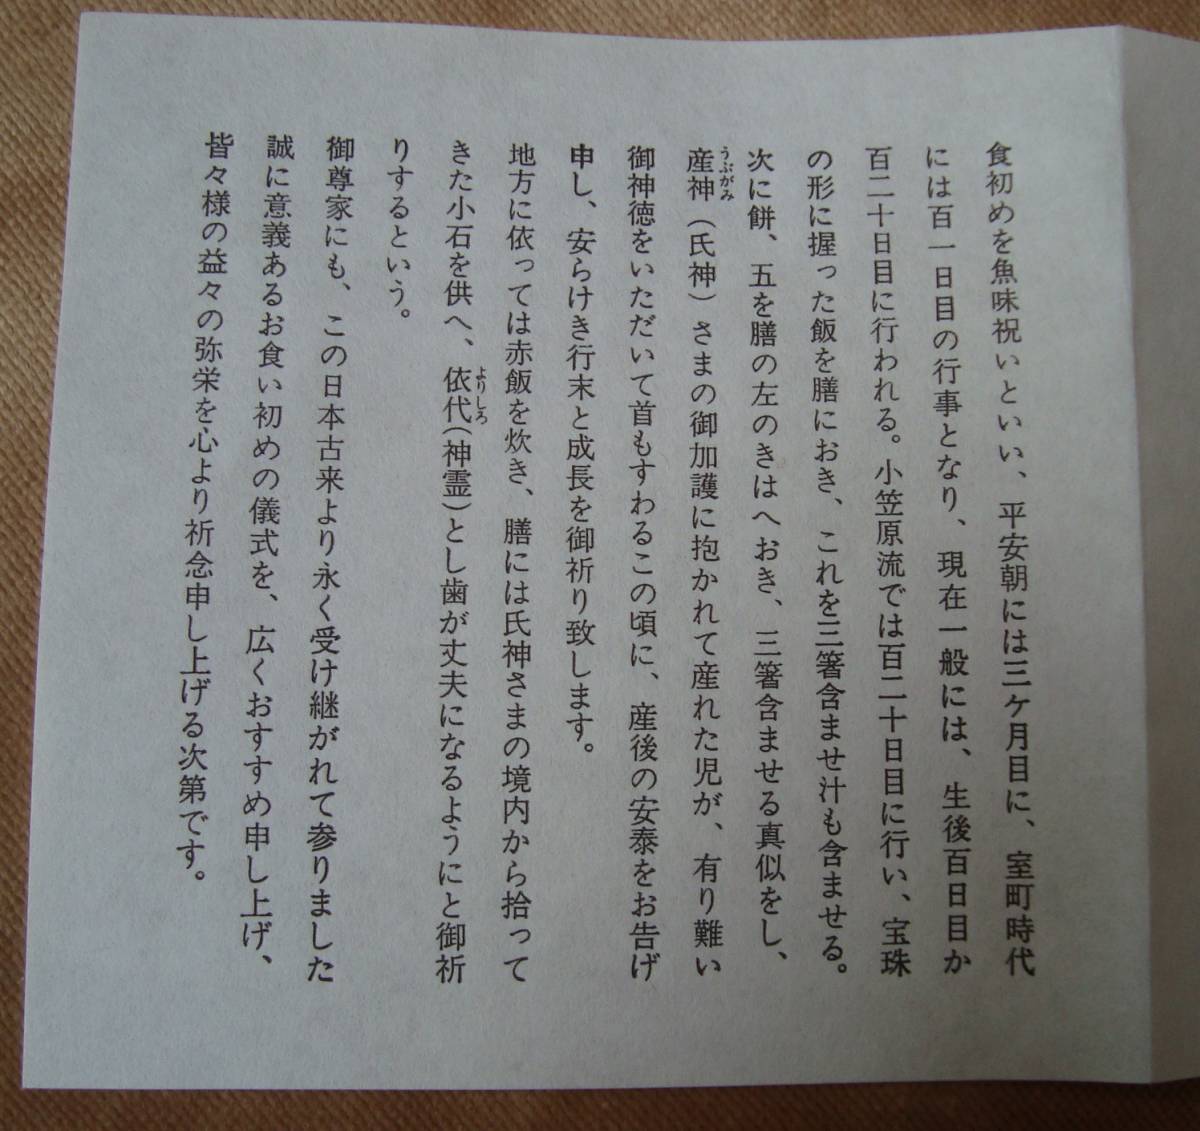 食初めを魚味祝いといい、平安朝には三ケ月目に、室町時代
には百一日目の行事となり、現在一般には、生後百日目か
百二十日目に行われる。小笠原流では百二十日目に行い、宝珠
の形に握った飯を膳におき、これを三箸含ませ汁も含ませる。
次に餅、五を膳の左のきはへおき、三箸含ませる真似をし、
産神（氏神）さまの御加護に抱かれて産れた児が、有り難い
うぶがみ
御神徳をいただいて首もすわるこの頃に、産後の安泰をお告げ
申し、安らけき行末と成長を御祈り致します。
地方に依っては赤飯を炊き、膳には氏神さまの境内から拾って
きた小石を供へ、依代（神霊）とし歯が丈夫になるようにと御祈
よりしろ
りするという。
御尊家にも、この日本古来より永く受け継がれて参りました
誠に意義あるお食い初めの儀式を、広くおすすめ申し上げ、
皆々様の益々の弥栄を心より祈念申し上げる次第です。